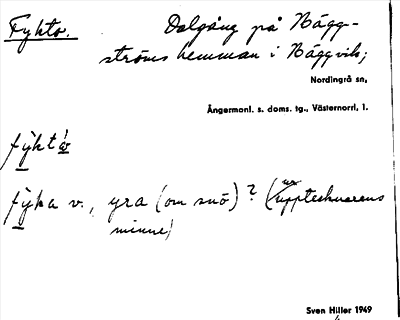 Fykto. Dalgång på Nägg-
ströms hemman i Näggvik;
Nordingrå sn,
Ångermanl. s. doms. tg., Västernorrl. l.
fýkta
fýka v., yra (om snö)? (ur upptecknarens
minne)
Sven Hiller 1949